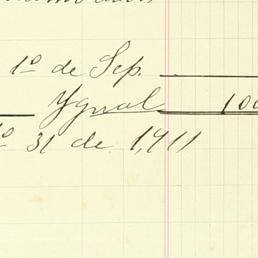 1º de Sep.
Ygual 100
º 31 de 1,911